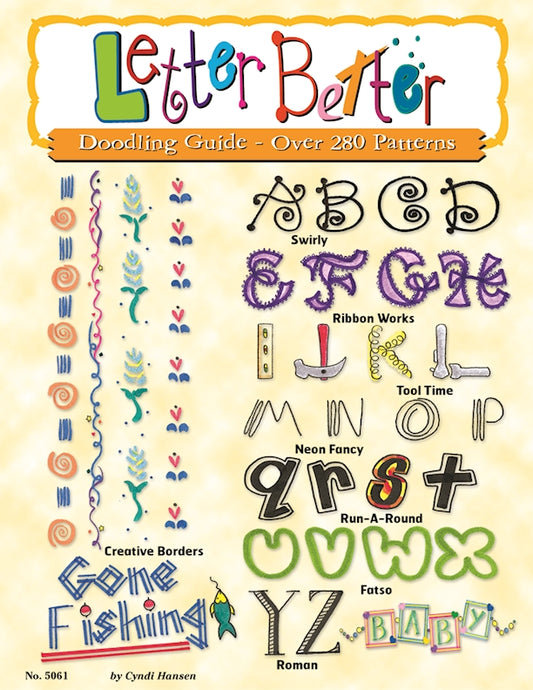 Letter Better
Doodling Guide - Over 280 Patterns
A B C D
Swirly
E F G H
Ribbon Works
I J K L
Tool Time
M N O P
Neon Fancy
q r s t
Run-A-Round
U V W X
Fatso
Y Z
Roman
BABY
Creative Borders
Gone
Fishing
No. 5061
by Cyndi Hansen